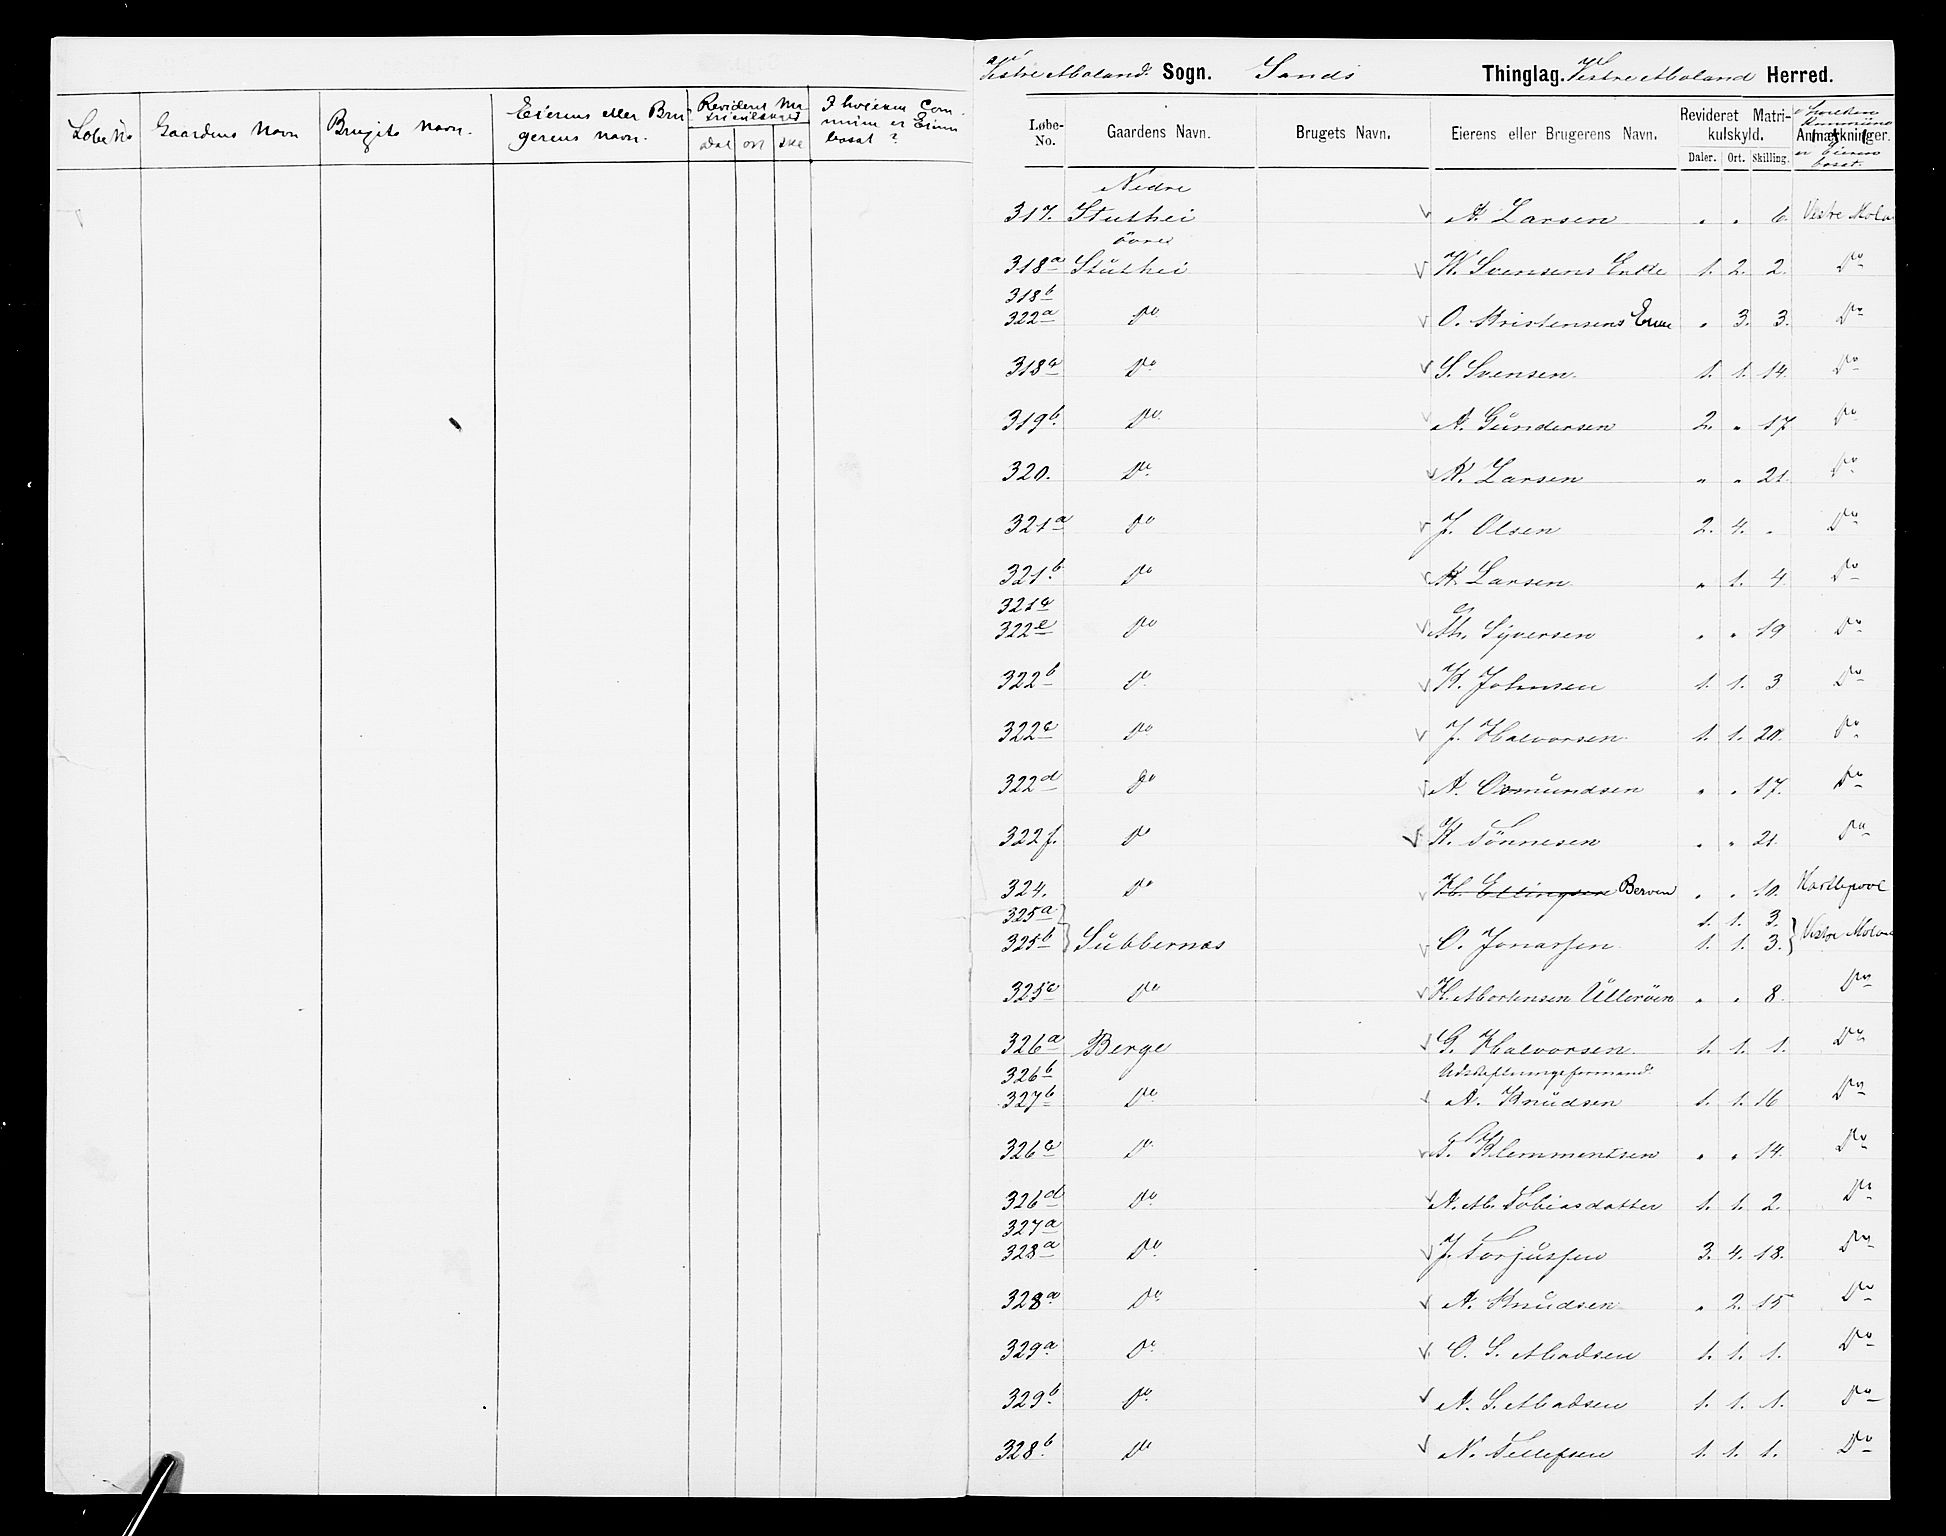 Løbe No
Gaardens Navn
Brugets Navn.
Eierens eller Bru
gerens navn.
Revideret Ma
trikulskyld
Dal ort Skil
I hvilken Com
mune er Eieren
bosat?
Vestre Moland Sogn. Sands Thinglag. Vestre Moland Herred.
Løbe-No. Gaardens Navn. Brugets Navn. Eierens eller Brugerens Navn. Revideret Matrikulskyld. Daler. Ort. Skilling. Anmærkninger.
i hvilken Kommune er Eieren bosat.
Nedre
317. Stuthei A. Larsen " " 6. Vestre Mola
øvre
318a Stuthei K. Svensens Enke 1. 2. 2. Do
318b
322a Do O. Kristensens Enke " 3. 3. Do
318c Do S. Svensen. 1. 1. 14. Do
319b. Do A. Gundersen 2. " 17 Do
320. Do K. Larsen " " 21. Do
321a Do J. Olsen 2. 4. " Do
321b. Do K. Larsen " 1. 4. Do
321c
322e Do Th. Syversen " " 19 Do
322b Do K. Johnsen 1. 1. 3 Do
322c Do J. Halvorsen. 1. 1. 20. Do
322d Do A. Osmundsen " " 17. Do
322f. Do K. Tönnesen " " 21. Do
324. Do H. Ellingsen Berven " " 10. Hartlepool
325a 1. 1. 3.
325b Subbernæs O. Jonassen. 1. 1. 3. Vestre Mola
325c Do H. Mortensen Ulleröen " " 8. Do
326a Berge G. Halvorsen. 1. 1. 1. Do
326b Udskiftningsformand.
327b Do A. Knudsen 1. 1. 16 Do
326c Do T. Klemmentsen " " 14. Do
326d Do N. M. Tobiasdatter 1. 1. 2. Do
327a
328a Do J. Torjussen 3. 4. 18. Do
328a. Do A. Knudsen " 2. 15 Do
329a Do O. S. Madsen 1. 1. 1. Do
329b. Do A. S. Madsen 1. 1. 1. Do
328b. Do N. Tellefsen 1. 1. 1. Do